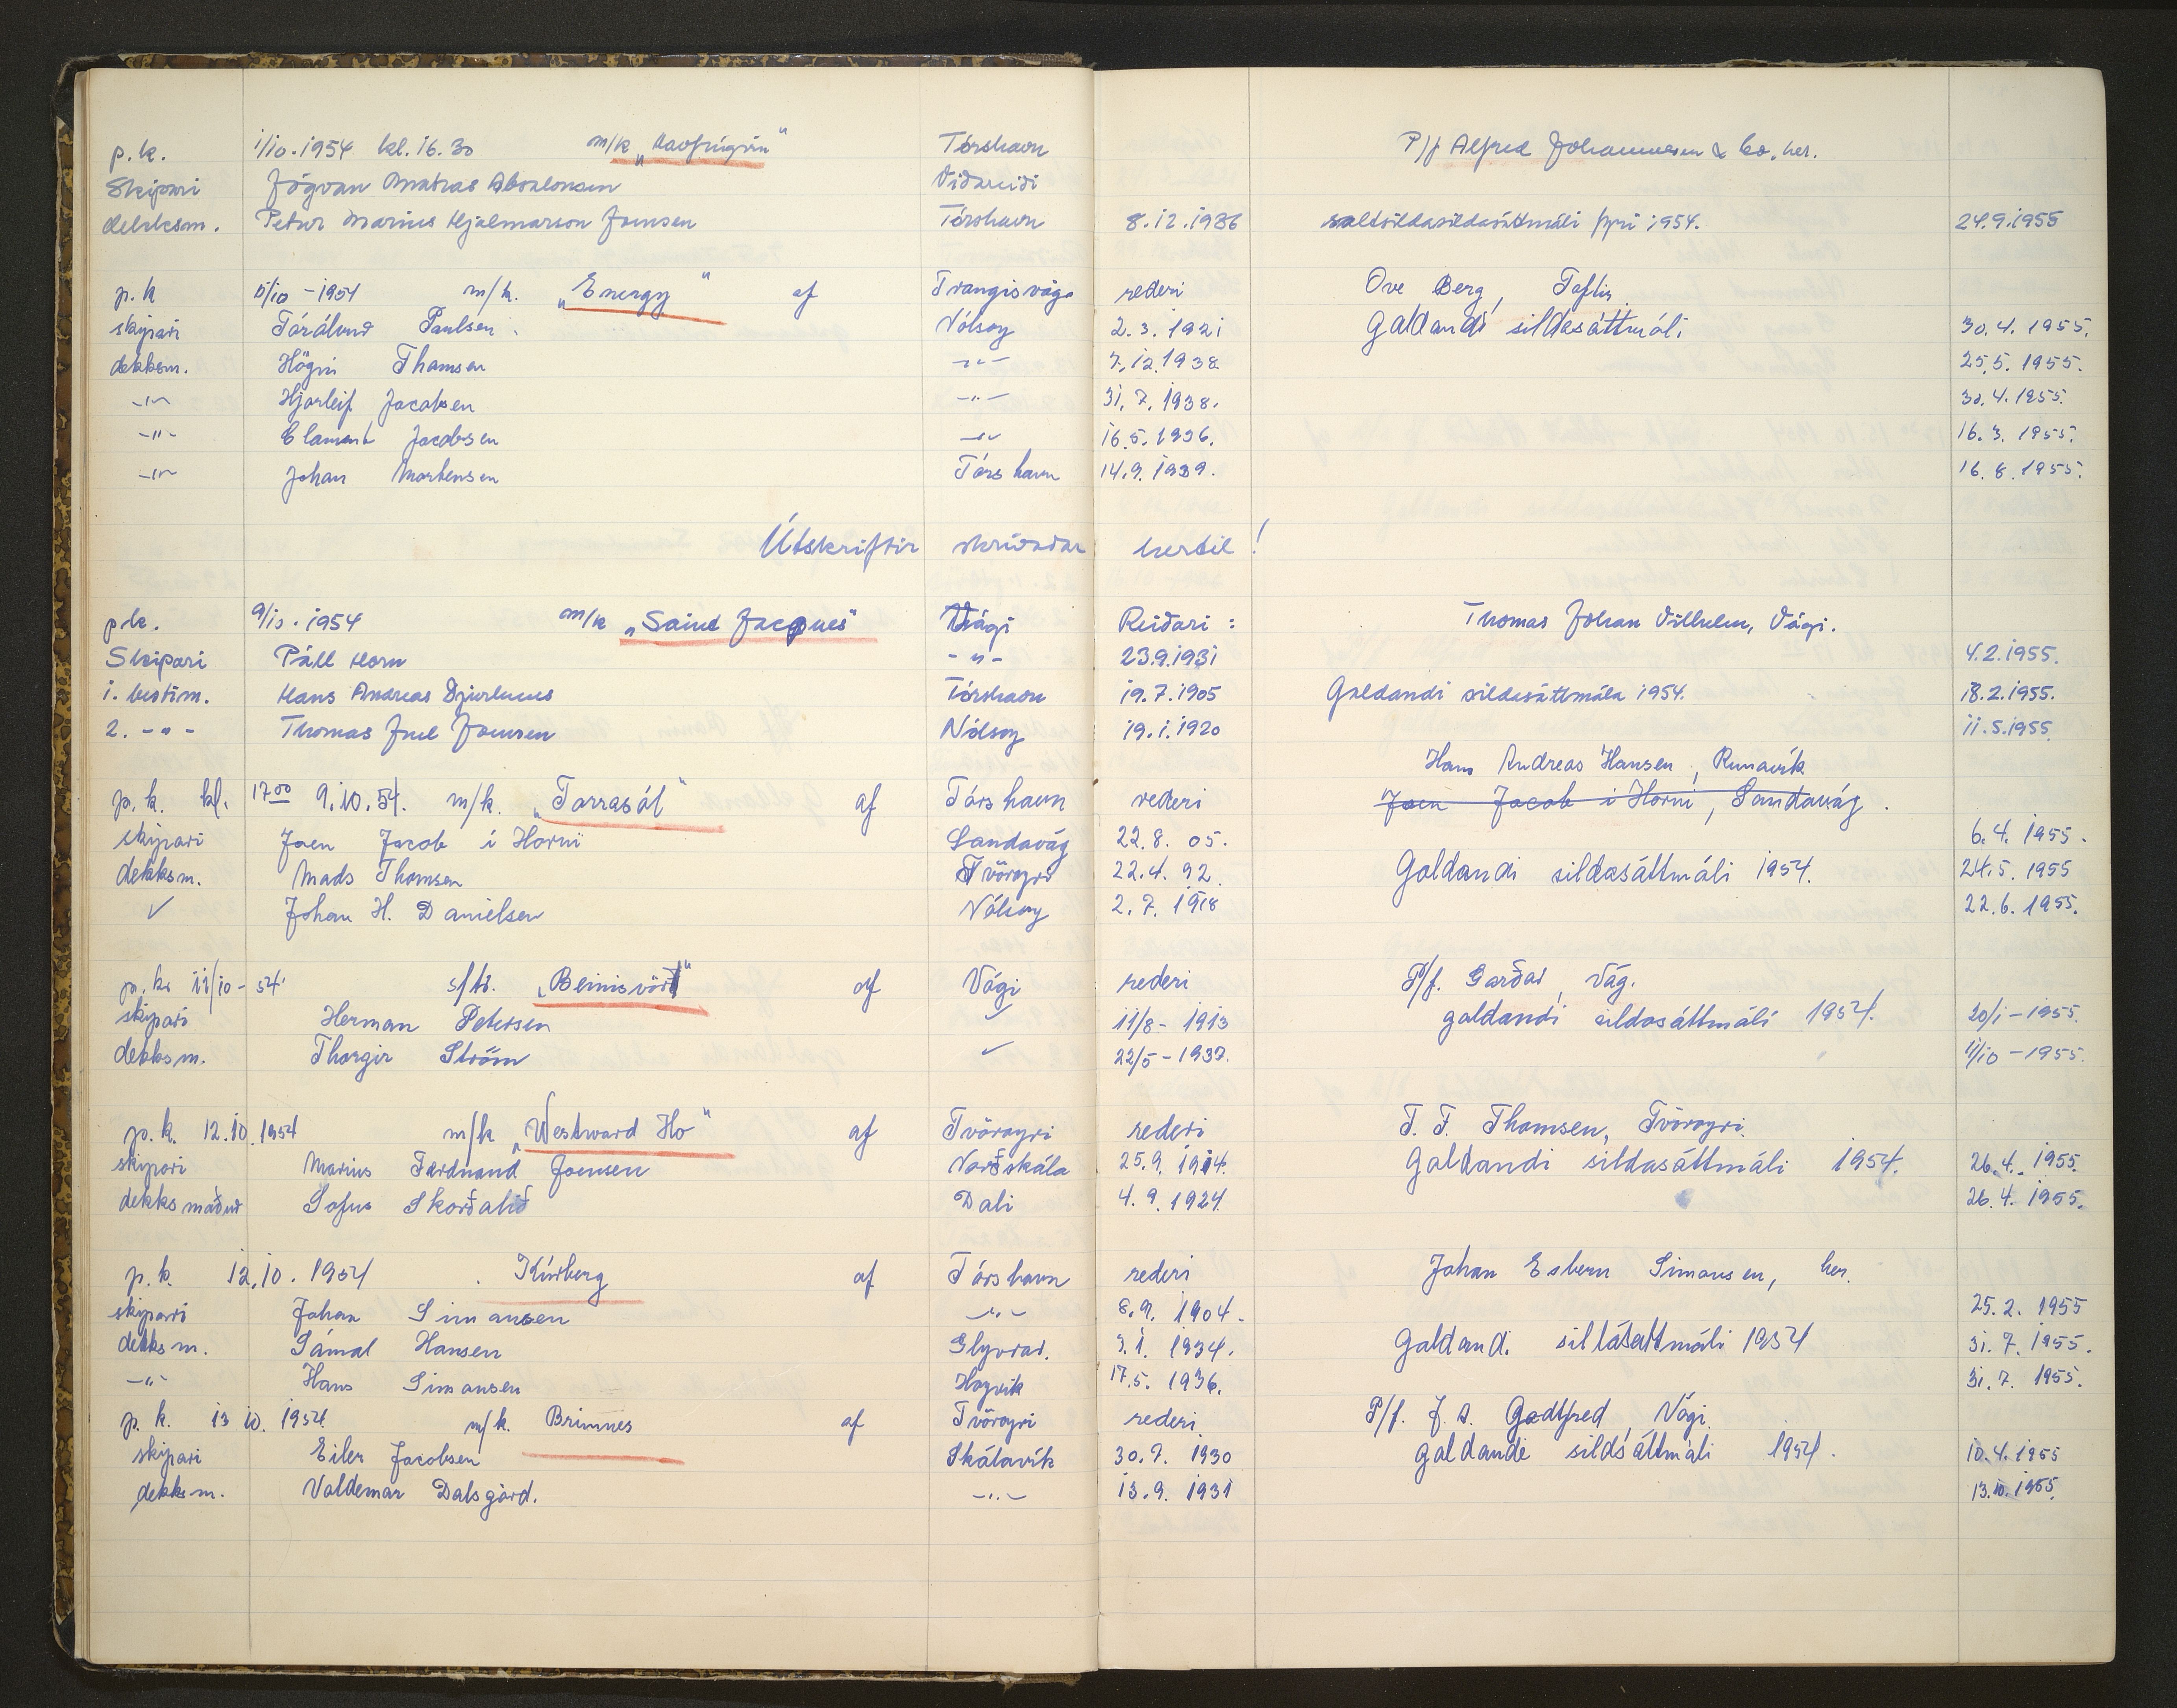 p.k. 1/10.1954 kl. 16.30 m/k „Havfrúgvin“ Tórshavn P/f Alfred Johannesen & Co. her.
Skipari Jógvan Matras Absalonsen Viðareiði
dekksm. Petur Marius Hjalmarson Joensen Tórshavn 8.12.1936 saltsildasildasáttmáli fyri 1954. 24.9.1955
p.k 5/10-1954 m/k. „Energy“ af Trangisvág rederi Ove Berg, Toftir
skipari Tórálvur Paulsen Nólsoy 2.3.1921 Galdandi sildasáttmáli 30.4.1955.
dekksm. Høgni Thomsen -"- 7.12.1938 25.5.1955.
-"- Hjørleif Jacobsen -"- 31.7.1938. 30.4.1955.
-"- Clament Jacobsen -"- 16.5.1936. 16.3.1955.
-"- Johan Mortensen Tórshavn 14.9.1939. 16.8.1955.
Útskriftir skrivaðar hertil!
p.k. 9/10.1954 m/k „Saint Jacques“ Vági Reiðari: Thomas Johan Vilhelm, Vági.
Skipari Páll Horn -"- 23.9.1931 4.2.1955.
1. bestm. Hans Andreas Djurhuus Tórshavn 19.7.1905 Galdandi sildasáttmála 1954. 18.2.1955.
2. -"- Thomas Juel Joensen Nólsoy 19.1.1920 11.5.1955
Hans Andreas Hansen, Runavík
p.k. kl. 1700 9.10.54. m/k. „Tarrasól“ af Tórshavn rederi Joen Jacob í Horni, Sandavág.
skipari Joen Jacob í Horni Sandavág 22.8.05. 6.4.1955.
dekksm. Mads Thomsen Tvöroyri 22.4.92. Galdandi sildasáttmáli 1954. 24.5.1955
✓ Johan H. Danielsen Nólsoy 2.7.1918 22.6.1955.
p.k. 11/10-54 s/tr. „Beinisvörð“ af Vági rederi P/f. Garðar, Vág.
skipari Herman Petersen ✓ 11/8-1913 galdandi sildasáttmáli 1954. 20/1-1955.
dekksm. Thorgir Ström ✓ 22/5-1937. 11/10-1955.
p.k. 12.10.1954 m/k „Westward Ho“ af Tvöroyri rederi T. F. Thomsen, Tvöroyri.
skipari Marius Ferdnand Joensen Norðskála 25.9.1914. Galdandi sildasáttmáli 1954. 26.4.1955.
dekksmaður Sofus Skorðalið Dali 4.9.1924. 26.4.1955.
p.k. 12.10.1954 Kúrberg af Tórshavn rederi Johan Esbern Simonsen, her.
skipari Johan Simonsen -"- 8.9.1904. 25.2.1955
dekksm. Sámal Hansen Glyvrar. 3.1.1934. Galdandi sildasáttmáli 1954 31.7.1955.
-"- Hans Simonsen Hoyvík 17.5.1936. 31.7.1955.
p.k. 13.10.1954 m/k. Brimnes af Tvöroyri rederi P/f. J. A. Godtfred, Vági.
skipari Eiler Jacobsen Skálavík 30.7.1930 galdandi sildsáttmáli 1954. 10.4.1955
dekksm. Valdemar Dalsgård. -"- 13.9.1931 13.10.1955.